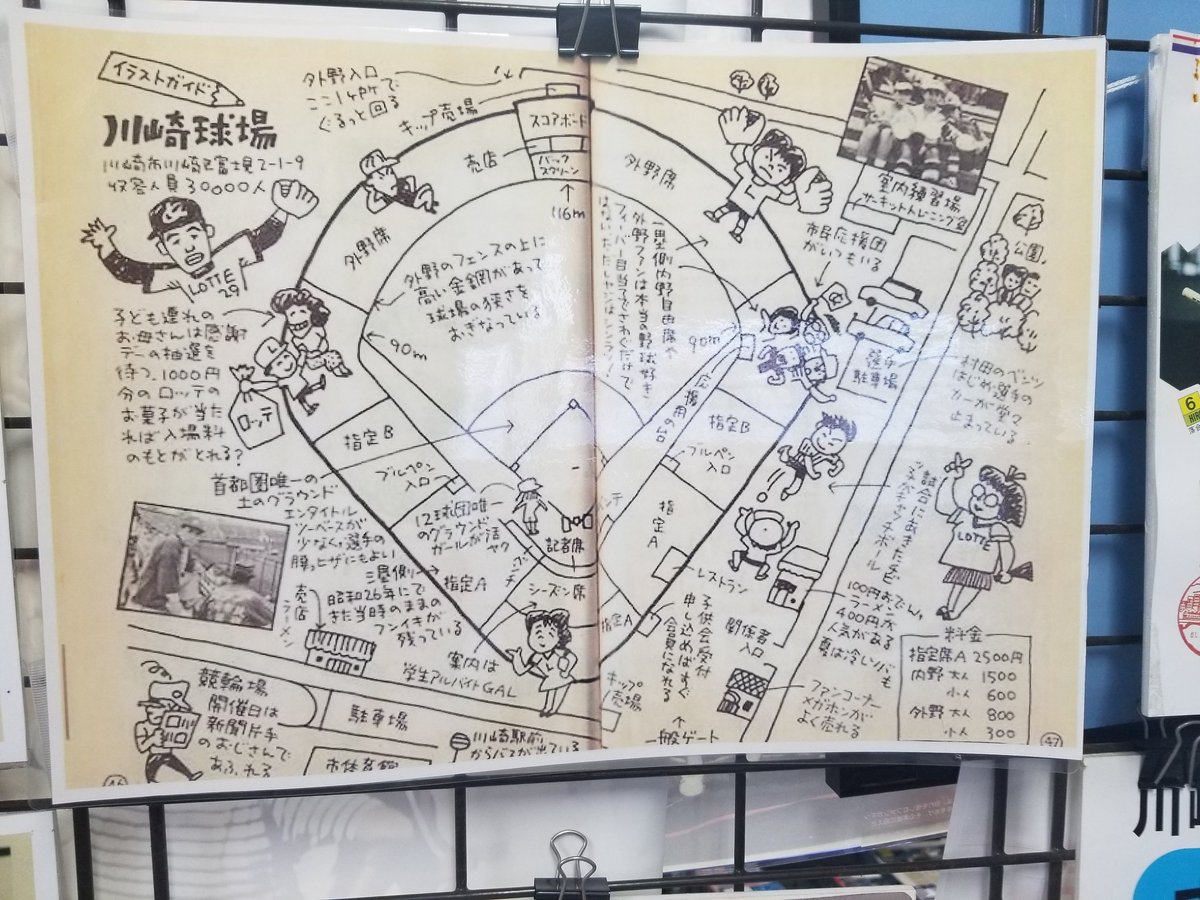 イラストガイド
川崎球場
川崎市川崎区富士見2-1-9
収容人員30000人
LOTTE
29
外野入口
ここ1ヶ所で
ぐるっと回る
キップ売場
スコアボード
バック
スクリーン
売店
116m
外野席
外野席
外野のフェンスの上に
高い金網があって
球場の狭さを
おぎなっている
90m
90m
一塁側内野自由席や
外野ファンは本当の野球好き
フィーバー目当てでさわぐだけで
室内練習場
サーキットトレーニング室
市民応援団
がいつもいる
公園
選手
駐車場
村田のベンツ
はじめ選手の
カーが堂々
止まっている
子ども連れの
お母さんは感謝
デーの抽選を
待つ、1000円
分のロッテの
お菓子が当た
れば入場料
のもとがとれる?
ロッテ
指定B
ブルペン
入口
応援用の台
指定B
ブルペン
入口
首都圏唯一の
土のグラウンド
エンタイトル
ツーベースが
少なく、選手の
腰、ヒザにもよい
12球団唯一
のグラウンド
ガールが活
ヤク
ベンチ
記者席
指定A
シーズン席
指定A
指定A
三塁側
昭和26年にで
きた当時のままの
フンイキが
残っている
売店
ラーメン
案内は
学生アルバイトGAL
レストラン
子供会受付
申し込めばすぐ
会員になれる
関係者
入口
試合にあきたチビ
ッ子がキャッチボール
LOTTE
100円おでん、
ラーメン
400円が
人気がある
夏は冷しソバも
ファンコーナー
メガホンが
よく売れる
料金
指定席A 2500円
内野 大人 1500
小人 600
外野 大人 800
小人 300
キップ
売場
一般ゲート
競輪場
開催日は
新聞片手
のおじさんで
あふれる
駐車場
市体育館
川崎駅前
からバスが出ている
46
47